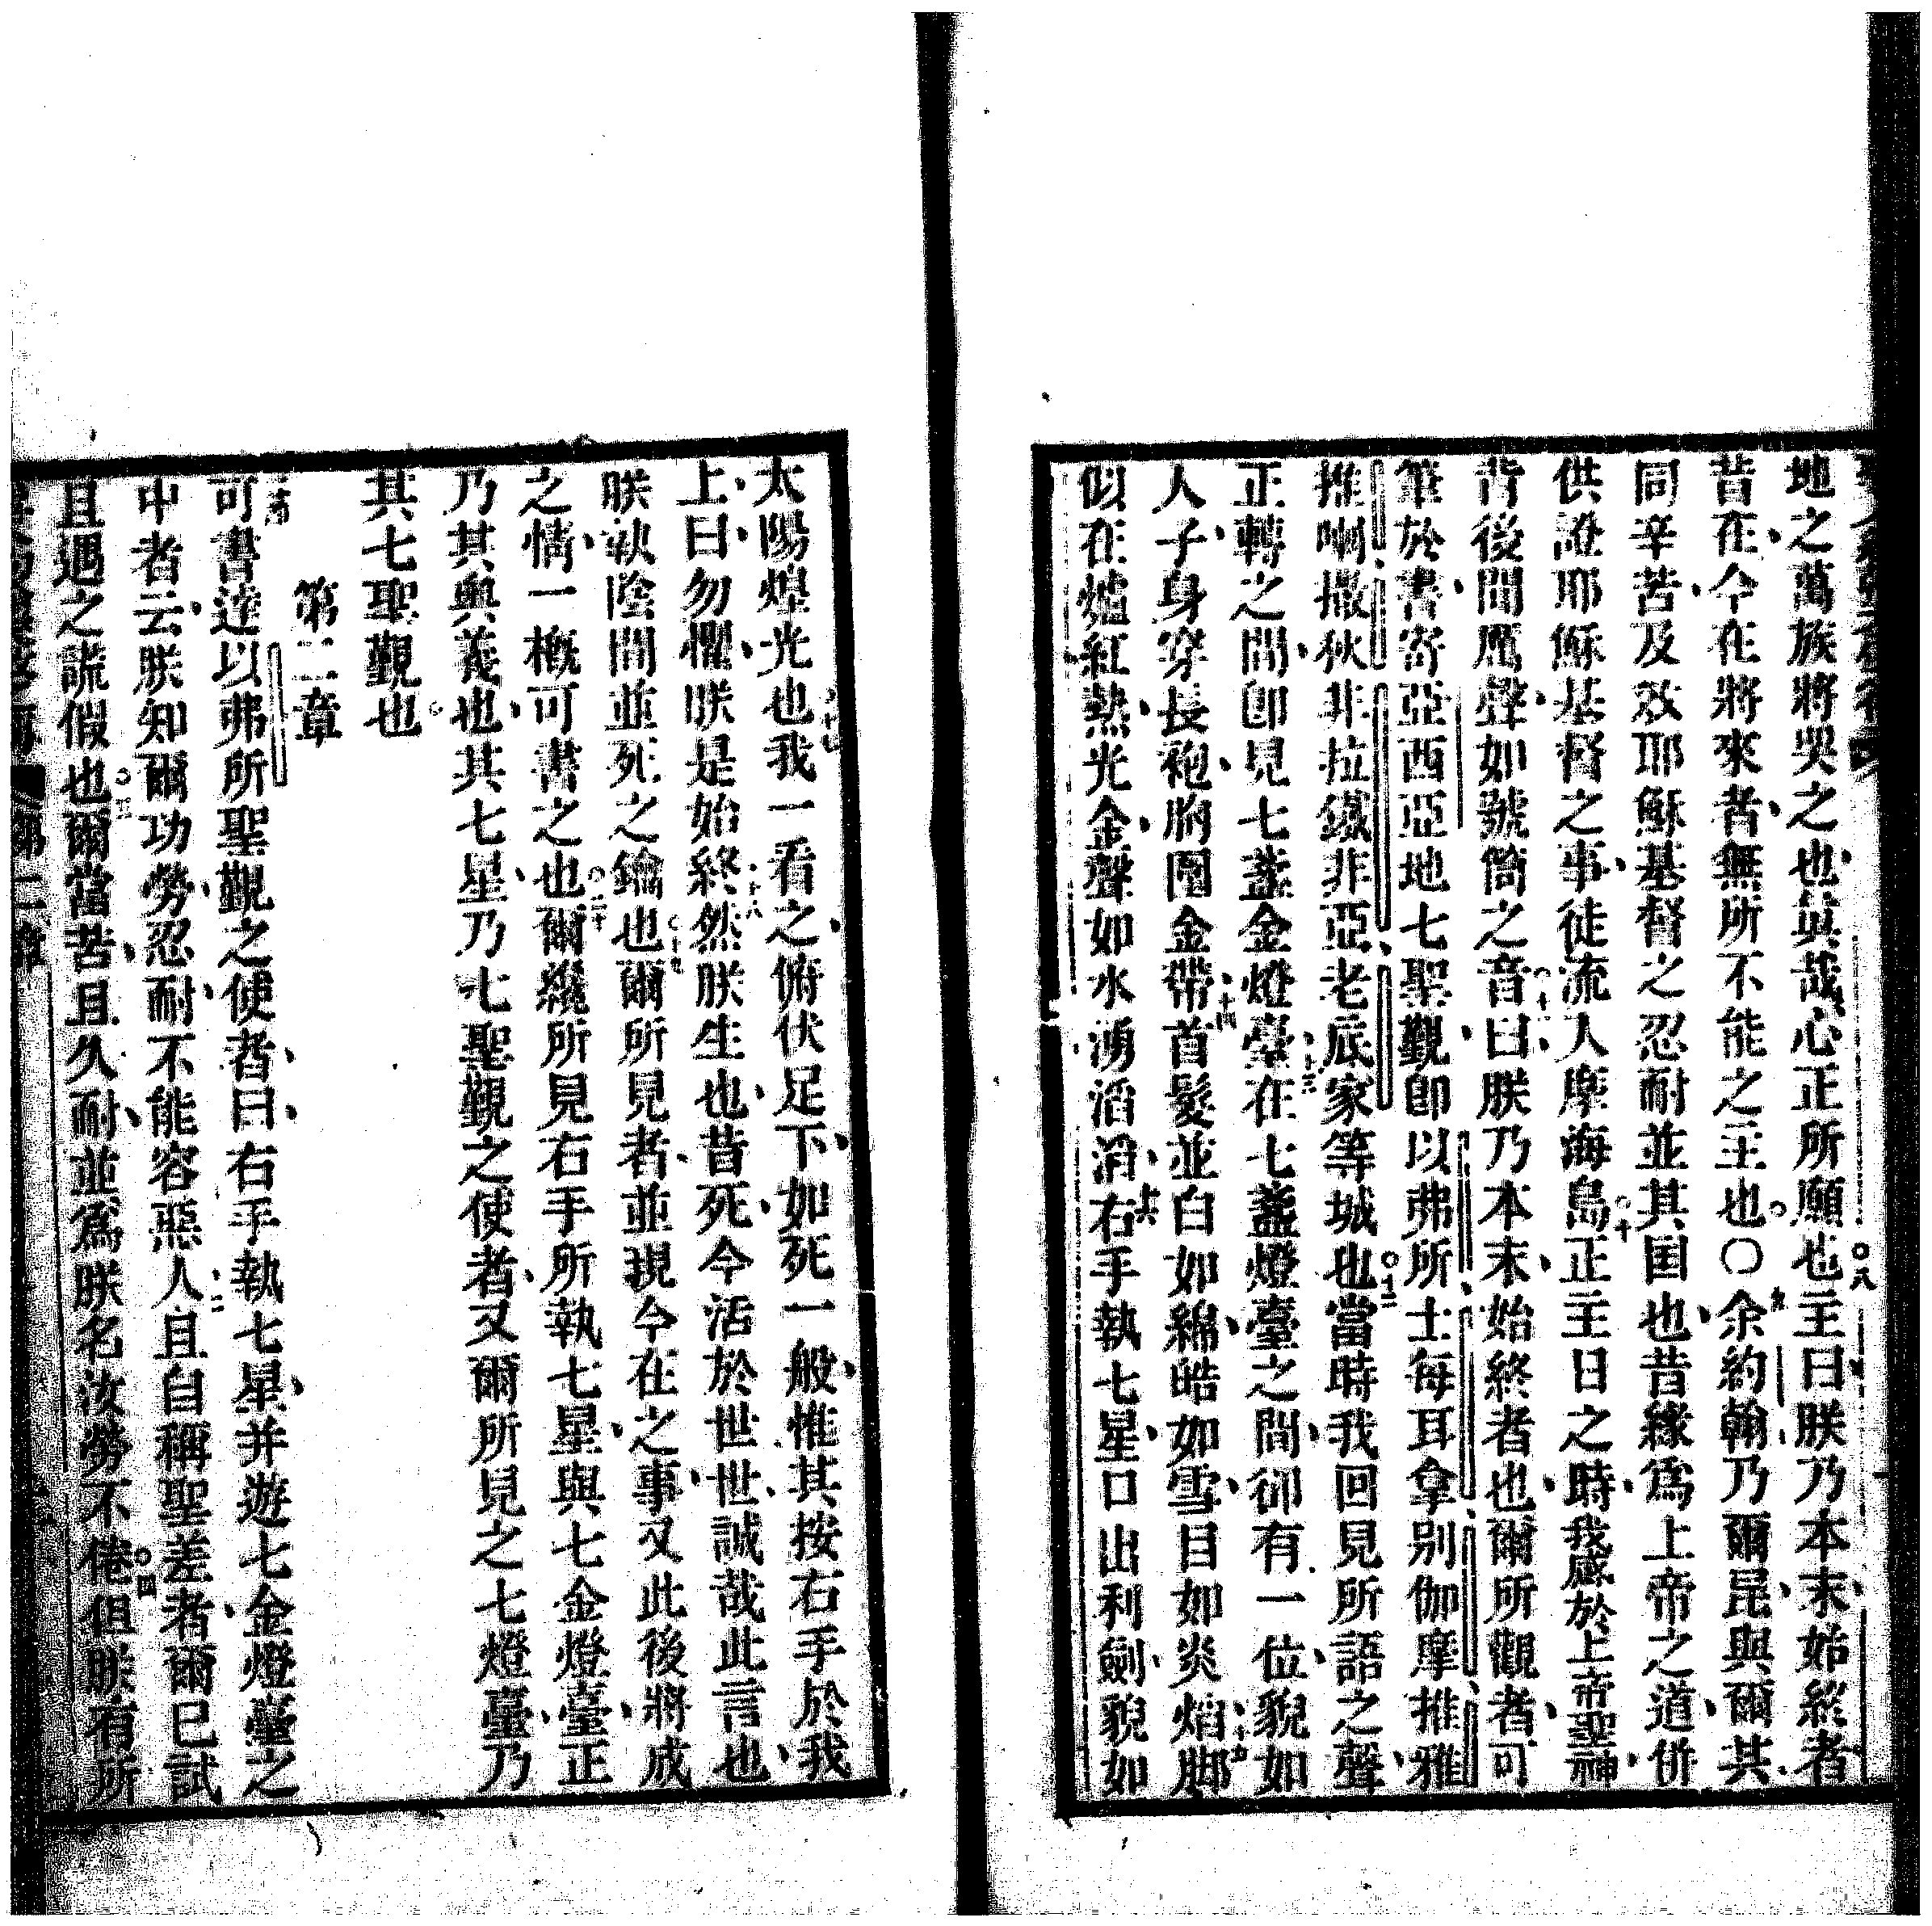 地之萬族將哭之也真哉心正所願也○八主曰朕乃本末始終者
昔在今在將來者無所不能之主也○九余約翰乃爾昆與爾其
同辛苦及效耶穌基督之忍耐並其囯也昔緣爲上帝之道併
供證耶穌基督之事徒流人摩海島○十正主日之時我感於上帝聖神
背後間鴈聲如號筒之音○十一曰朕乃本末始終者也爾所觀者可
筆於書寄亞西亞地七聖觀卽以弗所士每耳拿别伽摩推雅
推喇撒狄非拉鐵非亞老底家等城也○十二當時我回見所語之聲
正轉之間卽見七盞金燈臺十三在七盞燈臺之間卻有一位貌如
人子身穿長袍胸圍金帶十四首髮並白如綿皓如雪目如炎焰十五脚
似在爐紅熱光金聲如水湧滔滔十六右手執七星口出利劍貌如
太陽煌光也我一看之俯伏足下如死一般惟其按右手於我
上曰勿懼朕是始終十八然朕生也昔死今活於世世誠哉此言也
朕執陰間並死之鑰也○十九爾所見者並現今在之事又此後將成
之情一概可書之也○二十爾纔所見右手所執七星與七金燈臺正
乃其奥義也其七星乃七聖觀之使者又爾所見之七燈臺乃
其七聖觀也
第二章
可書達以弗所聖觀之使者曰右手執七星并遊七金燈臺之
中者云朕知爾功勞忍耐不能容惡人且自稱聖差者爾已試
且遇之謊假也○三爾當苦且久耐並爲朕名汝勞不倦○四但朕有所